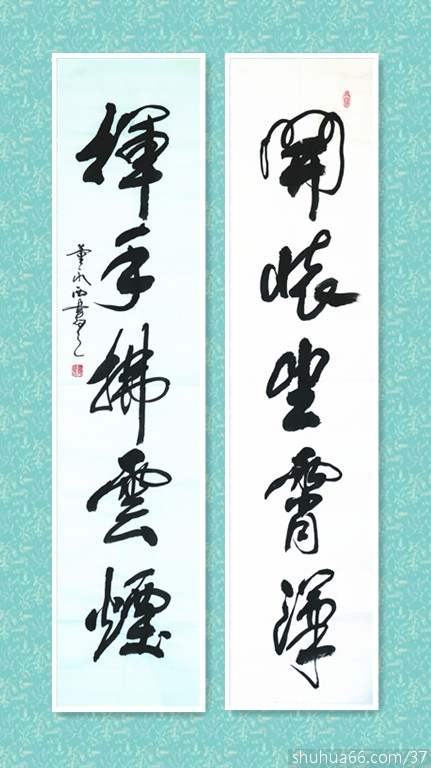 開懷坐霄漢
揮手拂雲煙
董永西書之
shuhua66.com/37